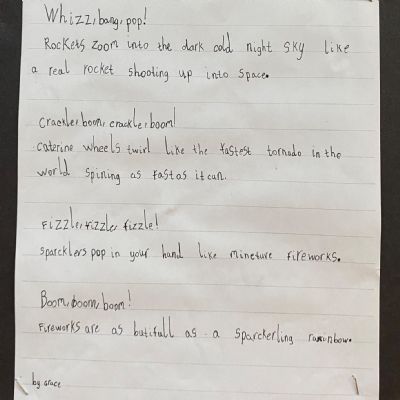 Whizz, bang, pop!
Rockets zoom into the dark cold night sky like
a real rocket shooting up into space.
Crackle, boom, crackle, boom!
caterine wheels twirl like the fastest tornado in the
world spining as fast as it can.
Fizzle, fizzle, fizzle!
sparcklers pop in your hand like mineture fireworks.
Boom, boom, boom!
Fireworks are as butifull as a sparckerling rainbow.
by grace